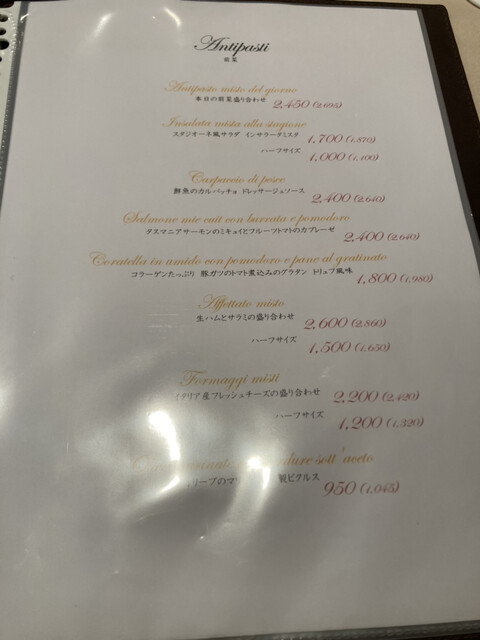 Antipasti
前菜
Antipasto misto del giorno
本日の前菜盛り合わせ 2,450 (2,695)
Insalata mista alla stagione
スタジオーネ風サラダ インサラータミスタ 1,700 (1,870)
ハーフサイズ 1,000 (1,100)
Carpaccio di pesce
鮮魚のカルパッチョ ドレッサージュソース 2,400 (2,640)
Salmone mic cuit con burrata e pomodoro
タスマニアサーモンのミキュイとフルーツトマトのカプレーゼ 2,400 (2,640)
Coratella in umido con pomodoro e pane al gratinato
コラーゲンたっぷり 豚ガツのトマト煮込みのグラタン トリュフ風味 1,800 (1,980)
Affettato misto
生ハムとサラミの盛り合わせ 2,600 (2,860)
ハーフサイズ 1,500 (1,650)
Formaggi misti
イタリア産フレッシュチーズの盛り合わせ 2,200 (2,420)
ハーフサイズ 1,200 (1,320)
sott'aceto
リーブのマリ 製ピクルス 950 (1,045)